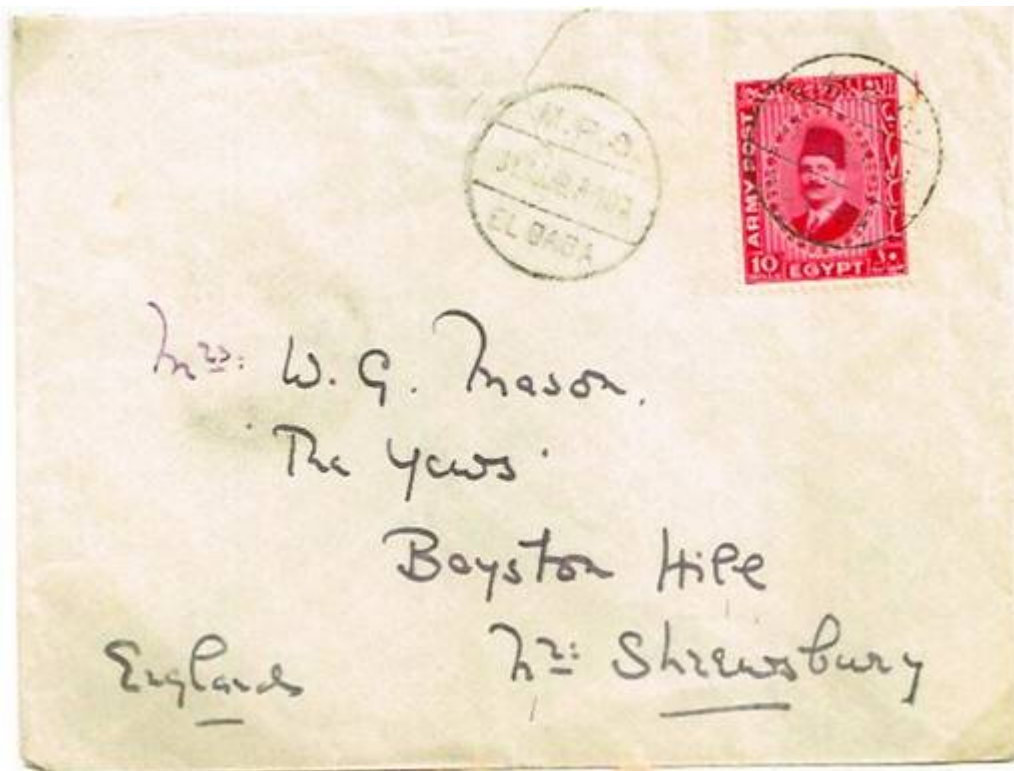 M.P.O.
EL DABA
ARMY POST
10 EGYPT ١٠
Mrs. W. G. Mason.
'The Yews'
Bayston Hill
Nr: Shrewsbury
England